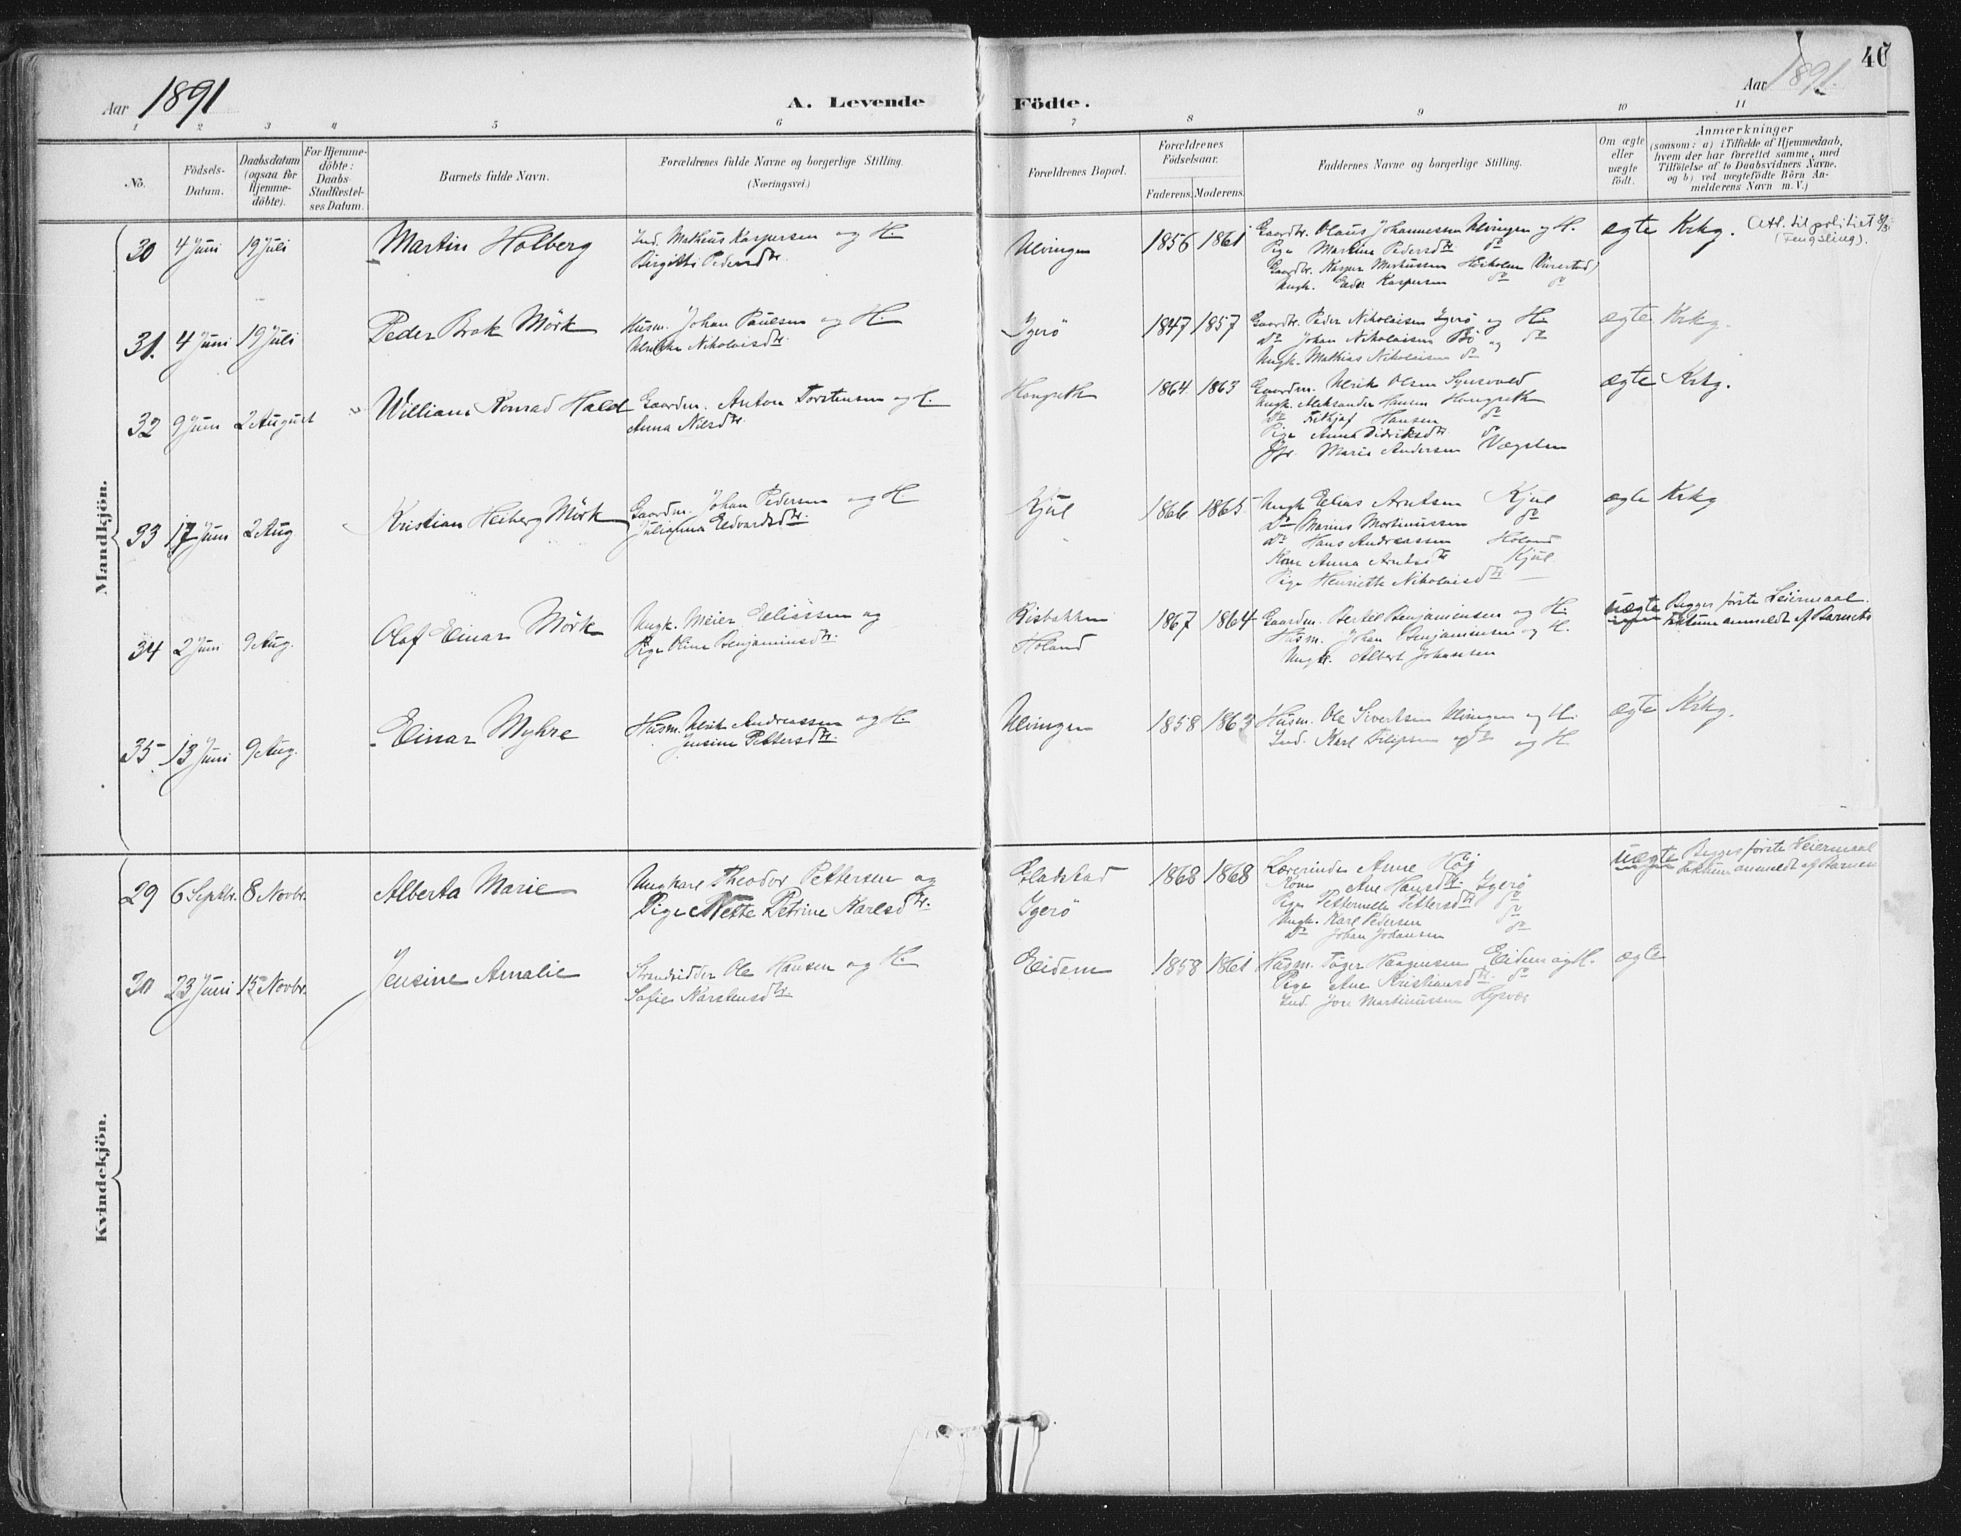 Aar 1891
A. Levende Födte.
Aar 1891
40
1 2 3 4 5 6 7 8 9 10 11
No.
Födsels-Datum.
Daabsdatum (ogsaa for Hjemme-döbte).
For Hjemme-döbte: Daabs Stadfæstel-ses Datum.
Barnets fulde Navn.
Forældrenes fulde Navne og borgerlige Stilling.
(Næringsvei.)
Forældrenes Bopæl.
Forældrenes Födselsaar.
Faderens. Moderens.
Faddernes Navne og borgerlige Stilling.
Om ægte eller uægte födt.
Anmærkninger
(saasom: a) i Tilfælde af Hjemmedaab,
hvem der har forrettet samme, med
Tilföielse af to Daabsvidners Navne,
og b) ved uægtefödte Börn An-
melderens Navn m. V.)
Mandkjön.
30 4 Juni 19 Juli Martin Holberg
Ind. Mathias Kaspersen og H.
Birgitte Pedersdtr.
Ulvingen 1856 1861
Gaardbr. Olaus Johannesen Ulvingen og H.
Pige Martine Pedersdtr do
Gaardbr. Kaspar Martinssen
Ungk. Kaspersen do
ægte Krkg. Att. til politiet
(Fengsling).
31. 4 Juni 19 Juli Peder Brok Mörk
Husm. Johan Paulsen og H.
Ulrikke Nikolaisdtr.
Ygerö 1847 1857
Gaardbr. Peder Nikolaisen Ygerö og H.
do Johan Nikolaisen Bö og do
Ungk. Mathias Nikolaisen do
ægte Krkg.
32 9 Juni 2 August William Konrad Hald
Gaardm. Anton Torstensen og H.
Anna Nilsdtr.
Hongseth 1864 1863
Gaardm. Ulrik Olsen
Ungk. Aleksander Hansen Hongseth
do Fritjof Hansen do
Pige Anna Didriksdtr do
Marie Andersen
ægte Krkg.
33 17 Juni 2 Aug Kristian Heiberg Mörk
Gaardm. Johan Pedersen og H
Julianna Edvardsdtr.
Kjul 1866 1865
Ungk Elias Arntsen Kjul
do Marius Mortinussen do
do Hans Andreassen Holand
Kone Anna Arntsdtr Kjul
Pige Henriette Nikolaisdtr
ægte Krkg
34 2 Juni 9 Aug. Olaf Einar Mörk
Ungk. Meier Eliassen og
Pige Oline Benjaminsdtr.
Risbakken
Holand
1867 1864
Gaardm. Bertel Benjaminsen og H.
Husm. Johan Benjaminsen og H.
Ungk. Albert Johansen
uægte Begges förste Leiermaal.
anmeldt af Barnets
35 13 Juni 9 Aug. Einar Myhre
Husm. Ulrik Andreassen og H.
Jensine Pettersdtr.
Ulvingen 1858 1863
Husm. Ole Sivertsen Ulvingen og H.
Ind. Karl Filipsen do og H
ægte Krkg.
Kvindekjön.
29 6 Septbr. 8 Novbr. Alberta Marie
Ungkarl Theodor Pettersen og
Pige Mette Petrine Karlsdtr.
Gladstad
Ygerö
1868 1868
Lærerinde Anne Höj
Kone Ane Hansdtr. Ygerö
Pige Petternelle Pettersdtr do
Ungk. Karl Pedersen do
do Johan Johansen do
uægte Begges förste Leiermaal
anmeldt af Barnets
30 23 Juni 15 Novbr. Jensine Amalie
Strandsidder Ole Hansen og H.
Sofie Karstensdtr.
Eidem 1858 1861
Husm. Haagensen Eidem og H.
Pige Ane Kristiansdtr do
Ind. Jon Martinussen Hysvær
ægte